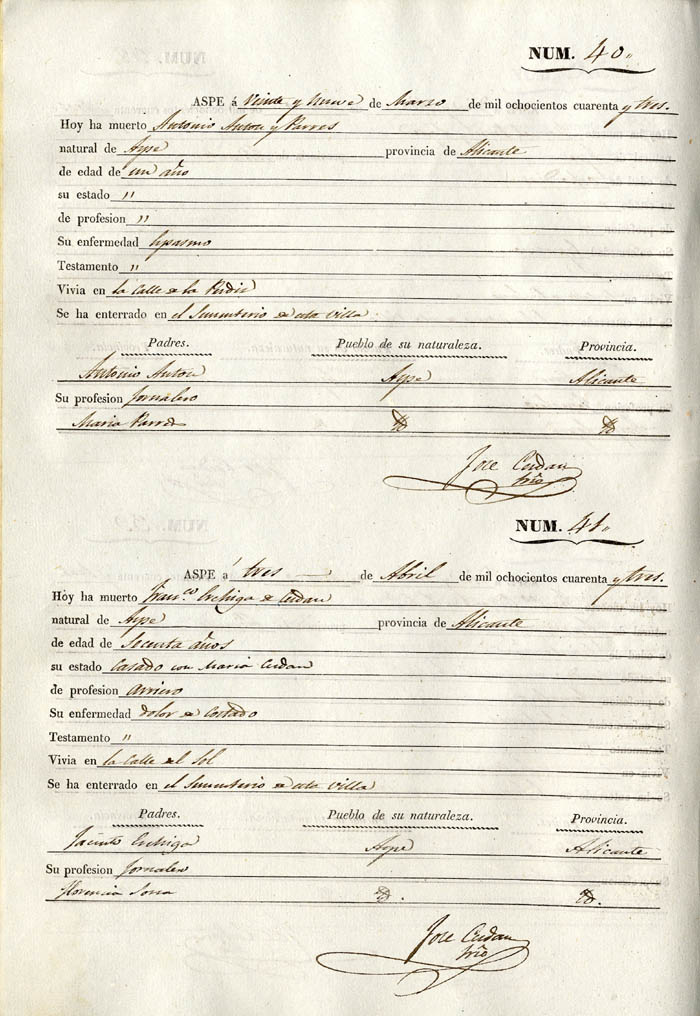 NUM. 40.
ASPE á Veinte y Nueve de Marzo de mil ochocientos cuarenta y tres.
Hoy ha muerto Antonio Anton y Parres
natural de Aspe provincia de Alicante
de edad de un año
su estado "
de profesion "
Su enfermedad Espasmo
Testamento "
Vivia en la Calle de la
Se ha enterrado en el Sementerio de esta Villa
Padres. Pueblo de su naturaleza. Provincia.
Antonio Anton Aspe Alicante
Su profesion Jornalero
Maria Parres
Jose Cerdan
NUM. 41.
ASPE á tres de Abril de mil ochocientos cuarenta y tres.
Hoy ha muerto Franco. de Cerdan
natural de Aspe provincia de Alicante
de edad de Secenta años
su estado Casado con Maria Cerdan
de profesion Arriero
Su enfermedad dolor de Costado
Testamento "
Vivia en la Calle del Sol
Se ha enterrado en el Sementerio de esta Villa
Padres. Pueblo de su naturaleza. Provincia.
Jacinto Aspe Alicante
Su profesion Jornalero
Florencia Soria
Jose Cerdan